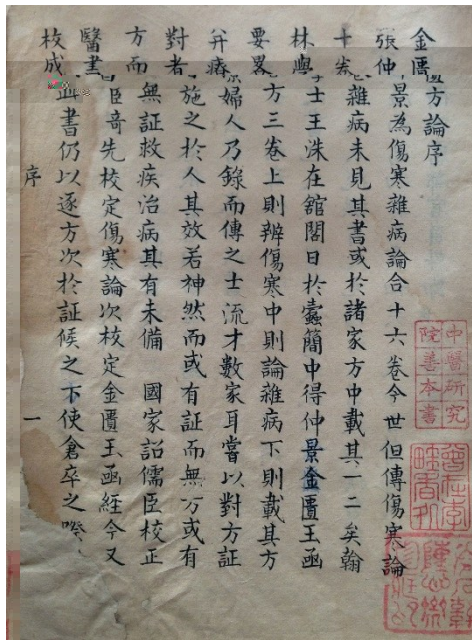 金匱畧方論序
張仲景為傷寒雜病論合十六卷今世但傳傷寒論
十卷雜病未見其書或於諸家方中載其一二矣翰
林學士王洙在舘閣日於蠹簡中得仲景金匱玉函
要畧方三卷上則辨傷寒中則論雜病下則載其方
并療婦人乃錄而傳之士流才數家耳嘗以對方証
對者施之於人其效若神然而或有証而無方或有
方而無証救疾治病其有未備 國家詔儒臣校正
醫書臣奇先校定傷寒論次校定金匱玉函經今又
校成此書仍以逐方次於証候之下使倉卒之際
序 一
中醫研究
院善本書